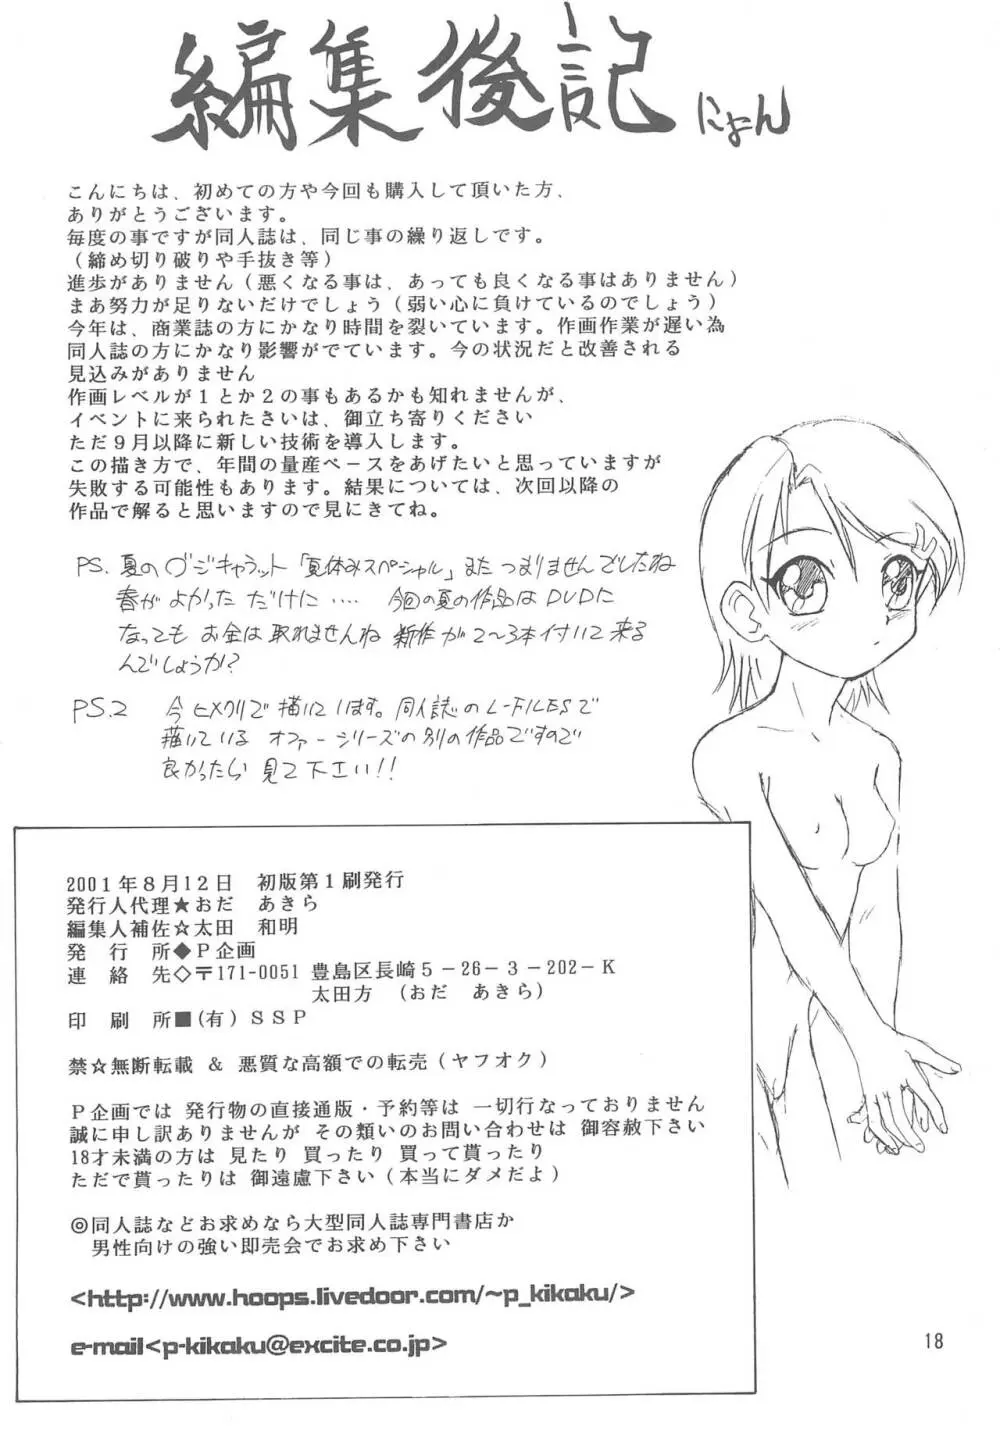 編集後記 にょん
こんにちは、初めての方や今回も購入して頂いた方、
ありがとうございます。
毎度の事ですが同人誌は、同じ事の繰り返しです。
（締め切り破りや手抜き等）
進歩がありません（悪くなる事は、あっても良くなる事はありません）
まあ努力が足りないだけでしょう（弱い心に負けているのでしょう）
今年は、商業誌の方にかなり時間を裂いています。作画作業が遅い為
同人誌の方にかなり影響がでています。今の状況だと改善される
見込みがありません
作画レベルが１とか２の事もあるかも知れませんが、
イベントに来られたさいは、御立ち寄りください
ただ９月以降に新しい技術を導入します。
この描き方で、年間の量産ペースをあげたいと思っていますが
失敗する可能性もあります。結果については、次回以降の
作品で解ると思いますので見にきてね。
PS. 夏のデジキャラット「夏休みスペシャル」またつまりませんでしたね
春がよかっただけに‥‥ 今回の夏の作品はDVDに
なってもお金は取れませんね 新作が2〜3本付いて来る
んでしょうか?
PS.2 今ヒメクリで描いています。同人誌のL-FILESで
描いている オファーシリーズの別の作品ですので
良かったら見て下さい!!
2001年８月12日 初版第１刷発行
発行人代理★おだ あきら
編集人補佐☆太田 和明
発 行 所◆Ｐ企画
連 絡 先◇〒171-0051 豊島区長崎５－26－３－202－Ｋ
太田方 （おだ あきら）
印 刷 所■(有）ＳＳＰ
禁☆無断転載 ＆ 悪質な高額での転売（ヤフオク）
Ｐ企画では 発行物の直接通販・予約等は 一切行なっておりません
誠に申し訳ありませんが その類いのお問い合わせは 御容赦下さい
18才未満の方は 見たり 買ったり 買って貰ったり
ただで貰ったりは 御遠慮下さい（本当にダメだよ）
◎同人誌などお求めなら大型同人誌専門書店か
男性向けの強い即売会でお求め下さい
<http://www.hoops.livedoor.com/~p_kikaku/>
e-mail<p-kikaku@excite.co.jp>
18